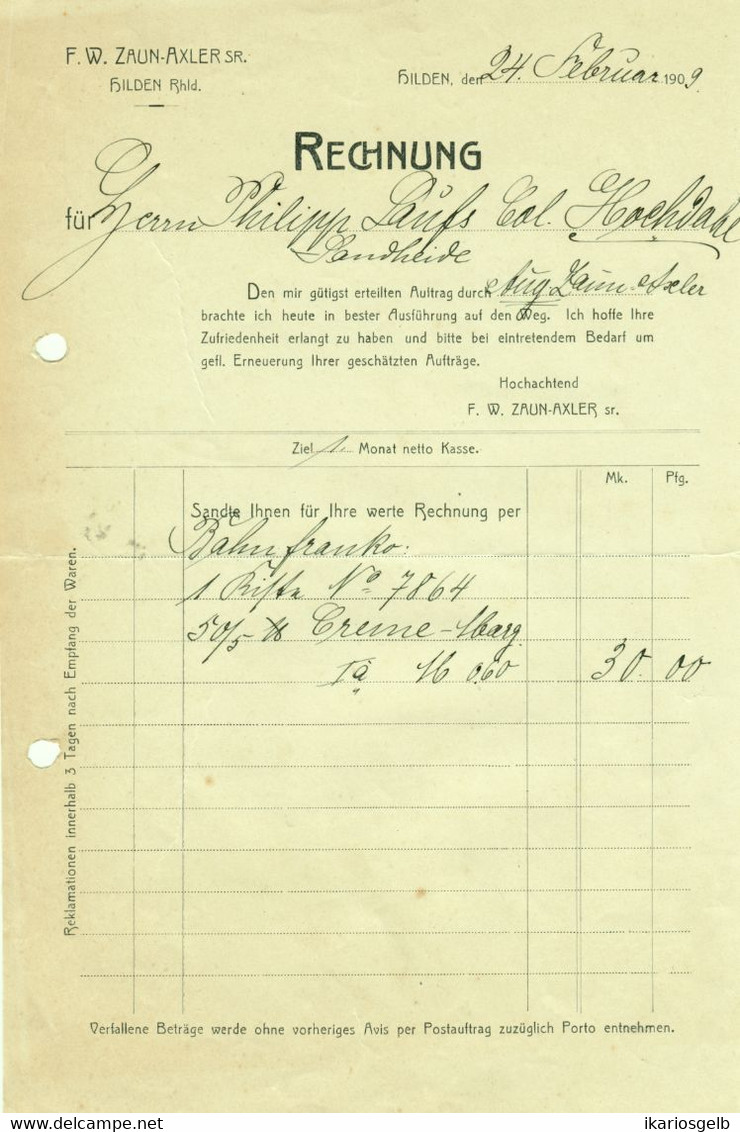 F. W. ZAUN-AXLER SR.
HILDEN Rhld.
HILDEN, den 24. Februar 1909.
RECHNUNG
für Herrn Philipp Laufs Col. Hochdahl
Sandheide
Den mir gütigst erteilten Auftrag durch Aug. Zaun-Axler
brachte ich heute in bester Ausführung auf den Weg. Ich hoffe Ihre
Zufriedenheit erlangt zu haben und bitte bei eintretendem Bedarf um
gefl. Erneuerung Ihrer geschätzten Aufträge.
Hochachtend
F. W. ZAUN-AXLER sr.
Ziel 1. Monat netto Kasse.
Mk. Pfg.
Sandte Ihnen für Ihre werte Rechnung per
Bahn franko:
1 Kiste No 7864
50/5 Creme-Marg.
Ia 0.60 30. 00
Reklamationen innerhalb 3 Tagen nach Empfang der Waren.
Verfallene Beträge werde ohne vorheriges Avis per Postauftrag zuzüglich Porto entnehmen.
www.delcampe.net
ikariosgelb